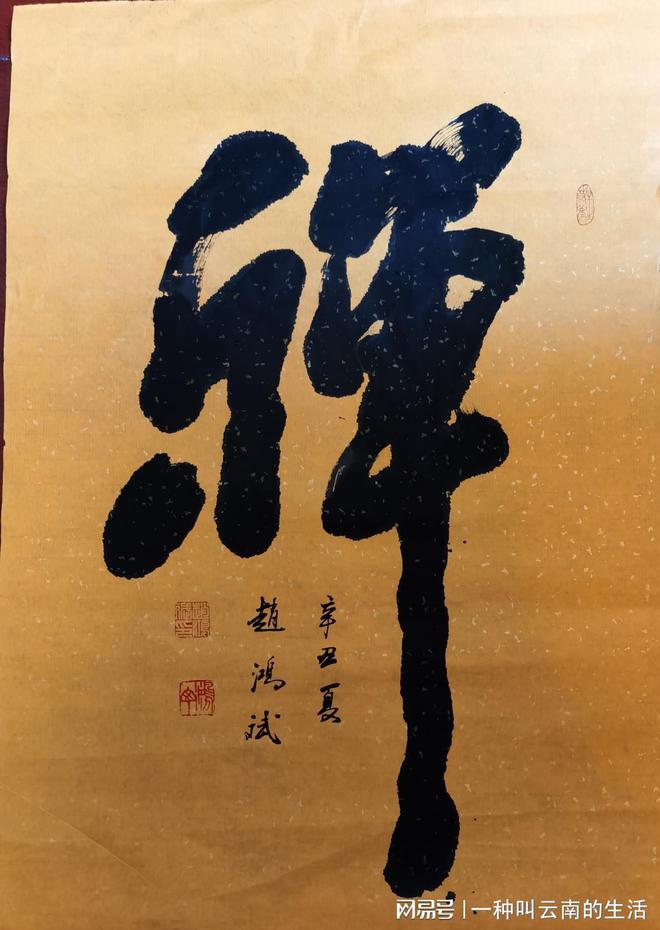 禅
辛丑夏
趙鴻斌
网易号 | 一种叫云南的生活